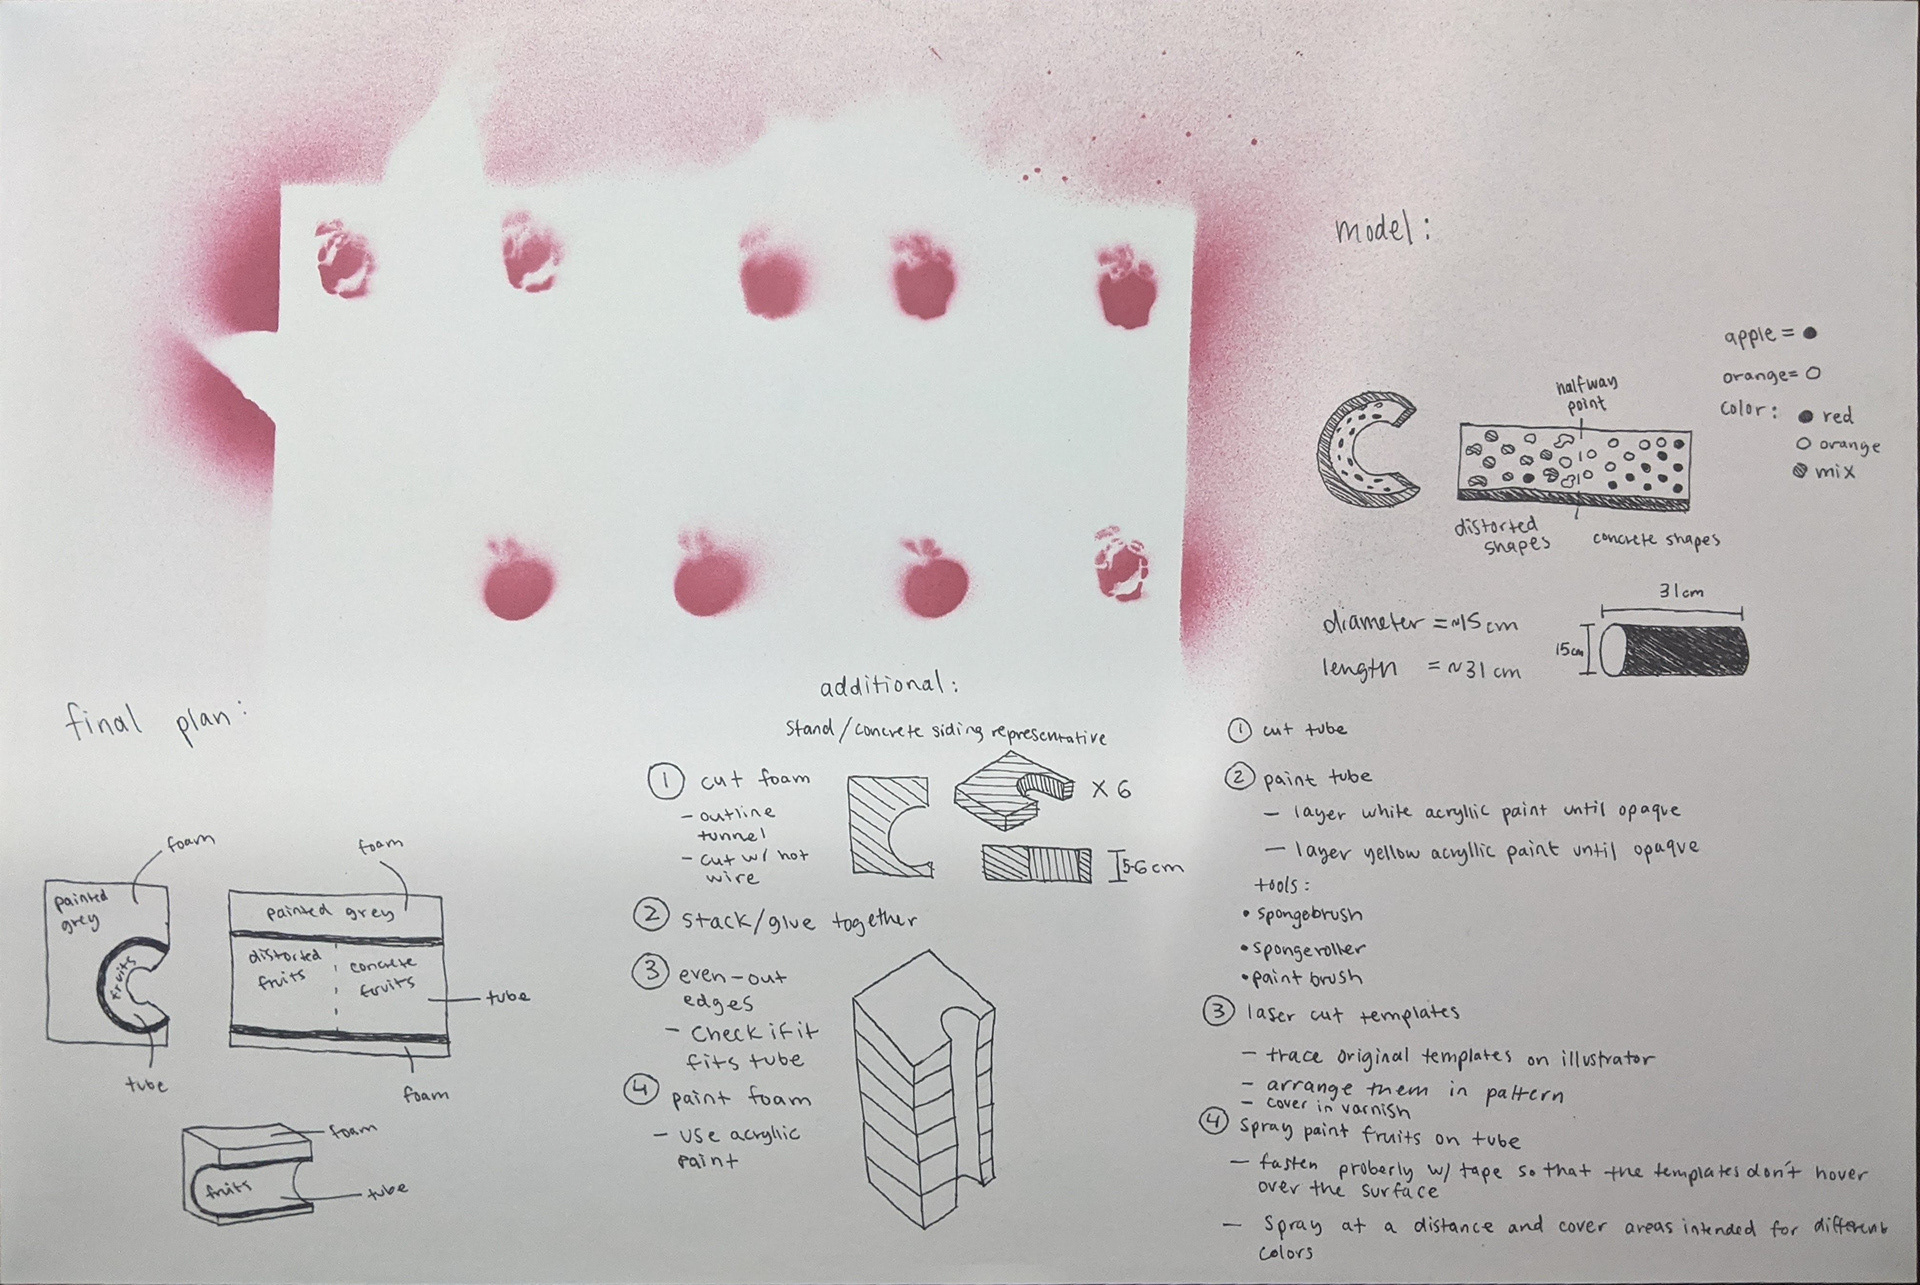 model:
apple = ●
orange= ○
color: ● red
○ orange
mix
halfway
point
distorted
shapes
concrete shapes
31cm
15cm
diameter = ~15 cm
length = ~31 cm
① cut tube
② paint tube
— layer white acryllic paint until opaque
— layer yellow acryllic paint until opaque
tools:
• spongebrush
• spongeroller
• paint brush
③ laser cut templates
— trace original templates on illustrator
— arrange them in pattern
— cover in varnish
④ spray paint fruits on tube
— fasten proberly w/ tape so that the templates don't hover
over the surface
— spray at a distance and cover areas intended for different
colors
additional:
stand/concrete siding representative
① cut foam
— outline
tunnel
— cut w/ hot
wire
X 6
5-6 cm
② stack/glue together
③ even-out
edges
— check if it
fits tube
④ paint foam
— use acryllic
paint
final plan:
foam
painted
grey
fruits
tube
foam
painted grey
distorted
fruits
concrete
fruits
tube
foam
foam
fruits
tube